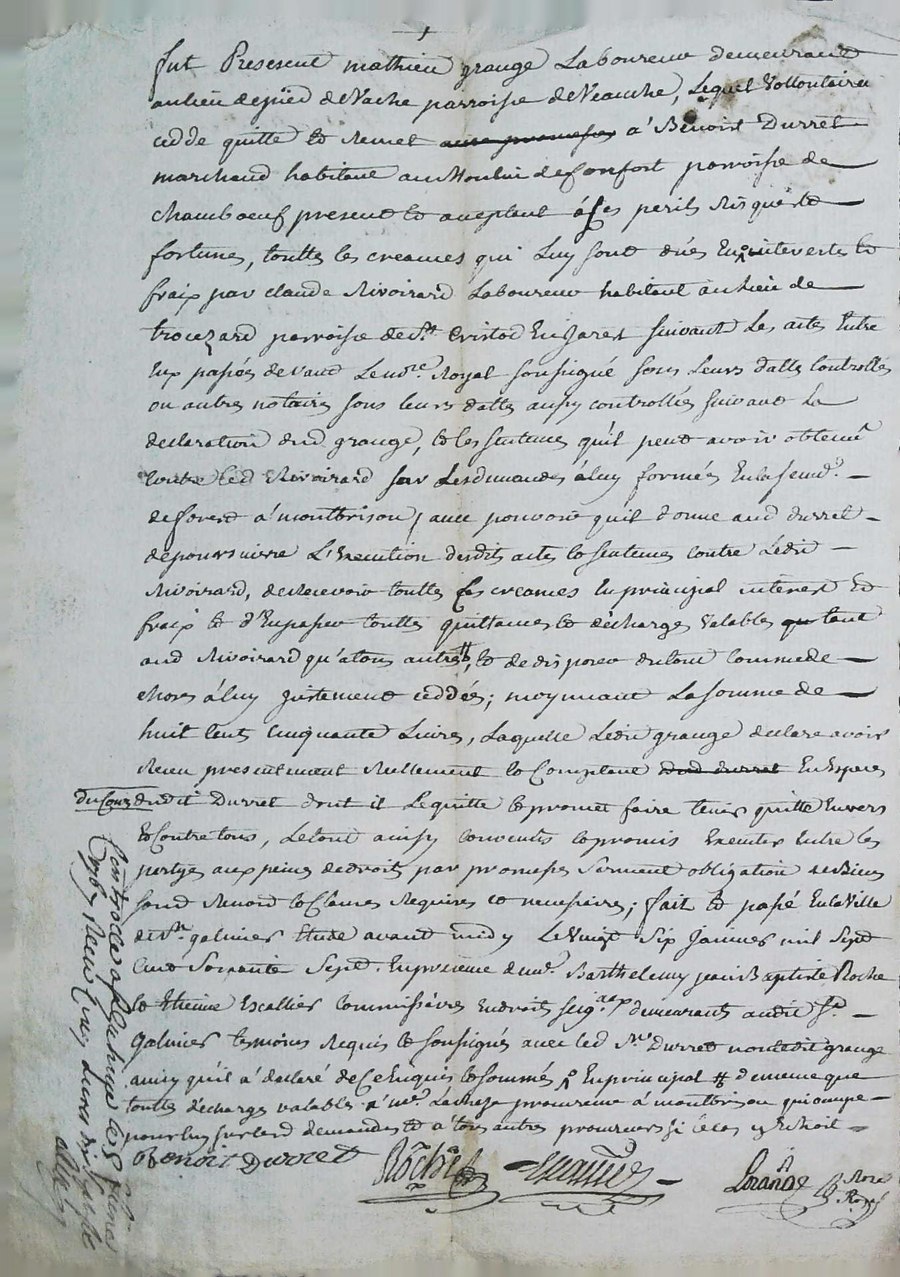 fut Present mathieu grange Laboureur demeurant
au lieu de pied de Vache parroisse de Veauche, Lequel Vollontairem
cedde quitte et Remet a Benoist Durret
marchand habitant au Moulin de Confort parroisse de
Chambœuf present et aceptant à ses perils Risque et
fortunes, touttes les creances qui Luy sont dües En interests et
fraix par claude Rivoirard Laboureur habitant au lieu de
parroise de St Cristot En Jarest suivant les actes Entre
Eux passés devant Le nore Royal soussigné sous Leurs dattes Controllés
ou autres notaires sous leurs dattes aussy controllés suivant La
declaration dud grange, et les sentences qu'il peut avoir obtenu
contre led Rivoirard sur Les demandes à luy formées En la senech
de forest a montbrison, avec pouvoir qu'il donne aud durret
de poursuivre L'Execution desdits actes et sentences contre Ledit
Rivoirard, de Recevoir touttes ses creances En principal interest et
fraix et d'En passer touttes quittances et décharges valables tant
aud Rivoirard qu'a tous autres, et de disposer du tout comme de
choses à luy justement ceddées; moyennant La somme de
huit cents cinquante Livres, Laquelle Ledit grange declare avoir
Receu presentement Reellement et Comptant En Especes
du Cours dudit Durret dont il Le quitte et promet faire tenir quitte Envers
et Contre tous, Le tout ainsy convenu et promis Executer Entre les
partyes aux peines de droits par promesses serment obligation de Biens
soumd Renond et Clauses Requises et necessaires; fait et passé En la Ville
de St galmier Etude avant midy Le Vingt Six Janvier mil Sept
Cent Soixante Sept. En presence de mre Barthelemy jean Baptiste Roche
et Etienne Escallier Commissaires En droits seigaux demeurants audit St
Galmier temoins Requis et soussignés avec led Sr Durret non ledit grange
ainsy qu'il a declaré de Ce Enquis et sommé, En principal # de meme que
touttes décharges valables a mre procureur a montbrison qui occupe
pour luy sur lesd demandes et a tous autres procureurs si le cas y Echoit
Benoit Durret Roche
Controllé a St galmier le